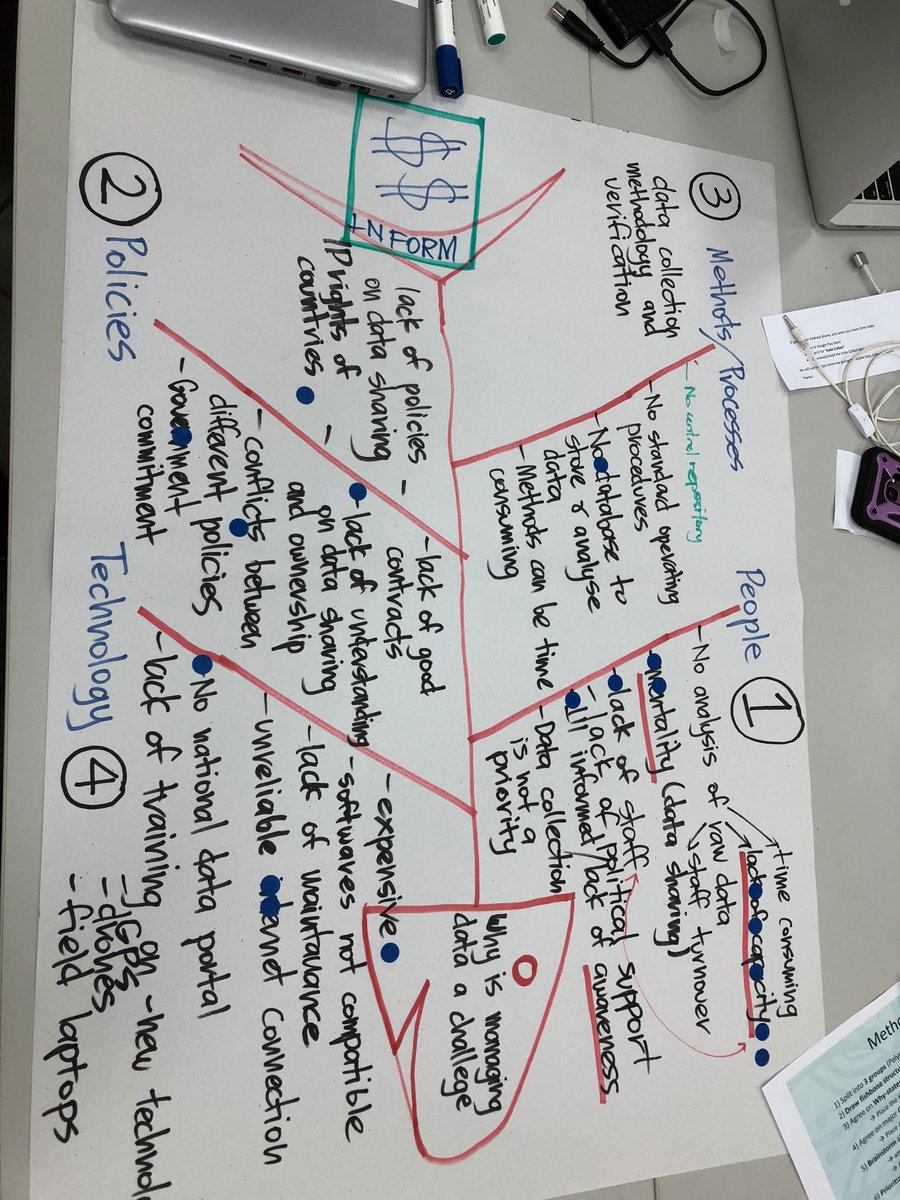 $$
INFORM
② Policies
lack of policies -
on data sharing
IP rights of -
countries
- lack of good
contracts
- lack of understanding
on data sharing
and ownership
- conflicts between
different policies
- Government
commitment
③ Methods/Processes
data collection
methodology and
verification
- No central repository
- No standard operating
procedures
- No database to
store & analyse
data
- Methods can be time
consuming
People ①
- No analysis of raw data
time consuming
lack of capacity
staff turnover
- mentality (data sharing)
- lack of staff
- lack of political support
- ill informed/lack of awareness
- Data collection
is not a
priority
Technology ④
- expensive
- softwares not compatible
- lack of maintanance
- unreliable internet connection
- No national data portal
- lack of training on - new technolo
- GPS
- drones
- field laptops
Why is managing
data a challege
Metho
1) Split into 3 groups (Poly
2) Draw fishbone structu
3) Agree on Why-state
4) Agree on major
5) Brainstorm